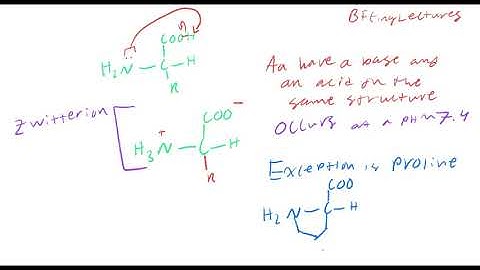 BFtinyLectures
COOH
H2N - C - H
R
Aa have a base and
an acid on the
same structure
Occurs at a pH ~ 7.4
Zwitterion
+
COO-
H3N - C - H
R
Exception is proline
COO
H2N - C - H